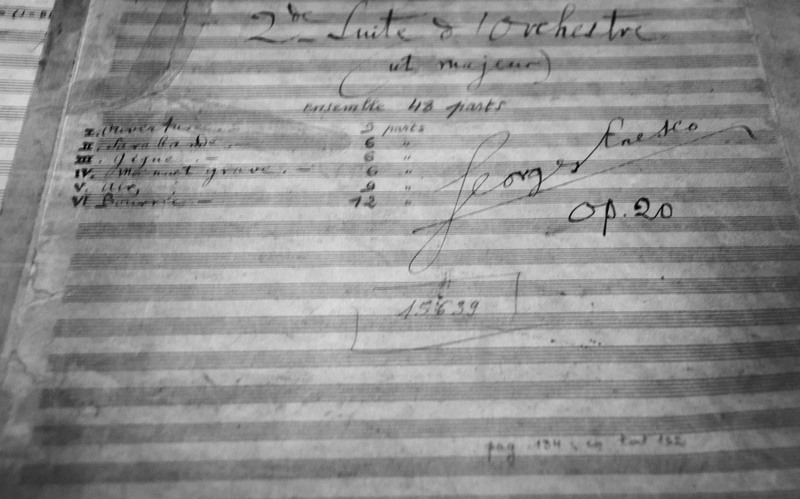 2de Suite d'Orchestre
(ut majeur)
ensemble 48 parts
I. Ouverture 9 parts
II. Sarabande 6 "
III. Gigue. — 6 "
IV. Menuet grave. — 6 "
V. Air, 9 "
VI Bourrée — 12 "
Georges Enesco
Op. 20
15639
pag. 184, en tout 192